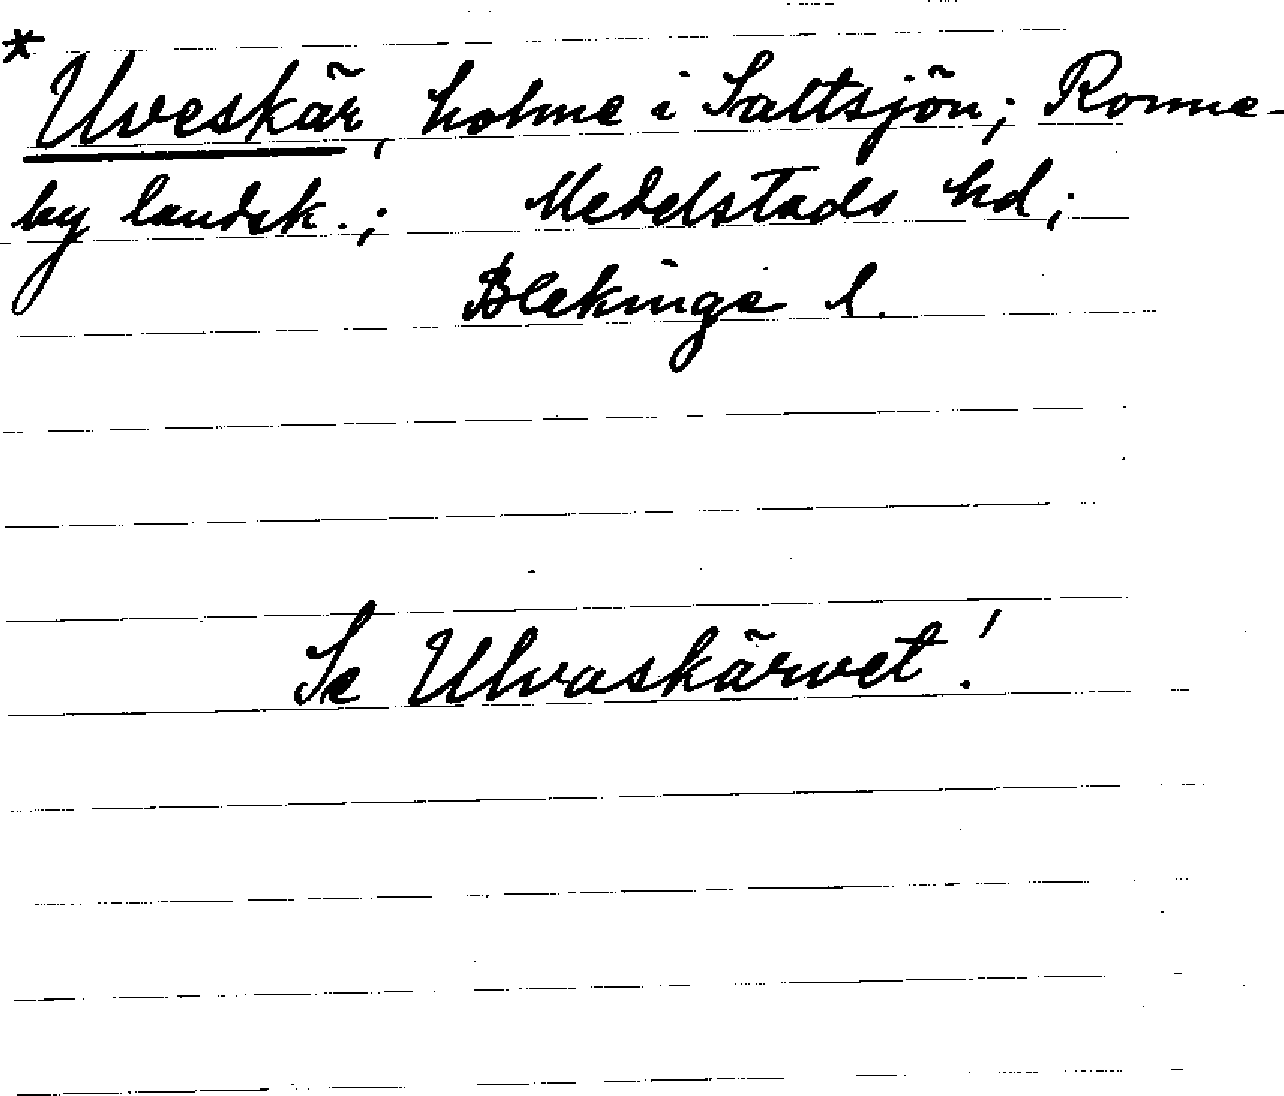 * Uveskär, holme i Saltsjön; Ronne-
by landsk.; Medelstads hd;
Blekinge l.
Se Ulvaskärvet!